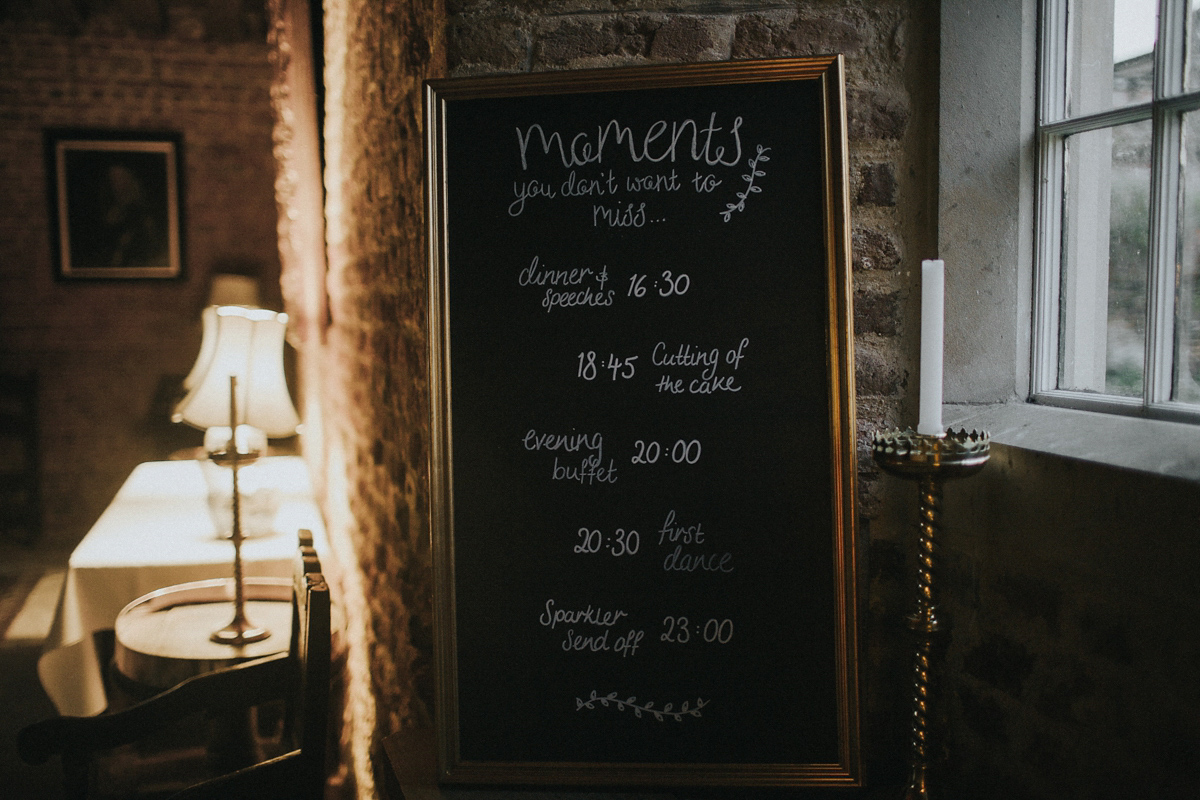 moments
you don't want to
miss...
dinner &
speeches 16:30
18:45 Cutting of
the cake
evening
buffet 20:00
20:30 first
dance
Sparkler
Send off 23:00